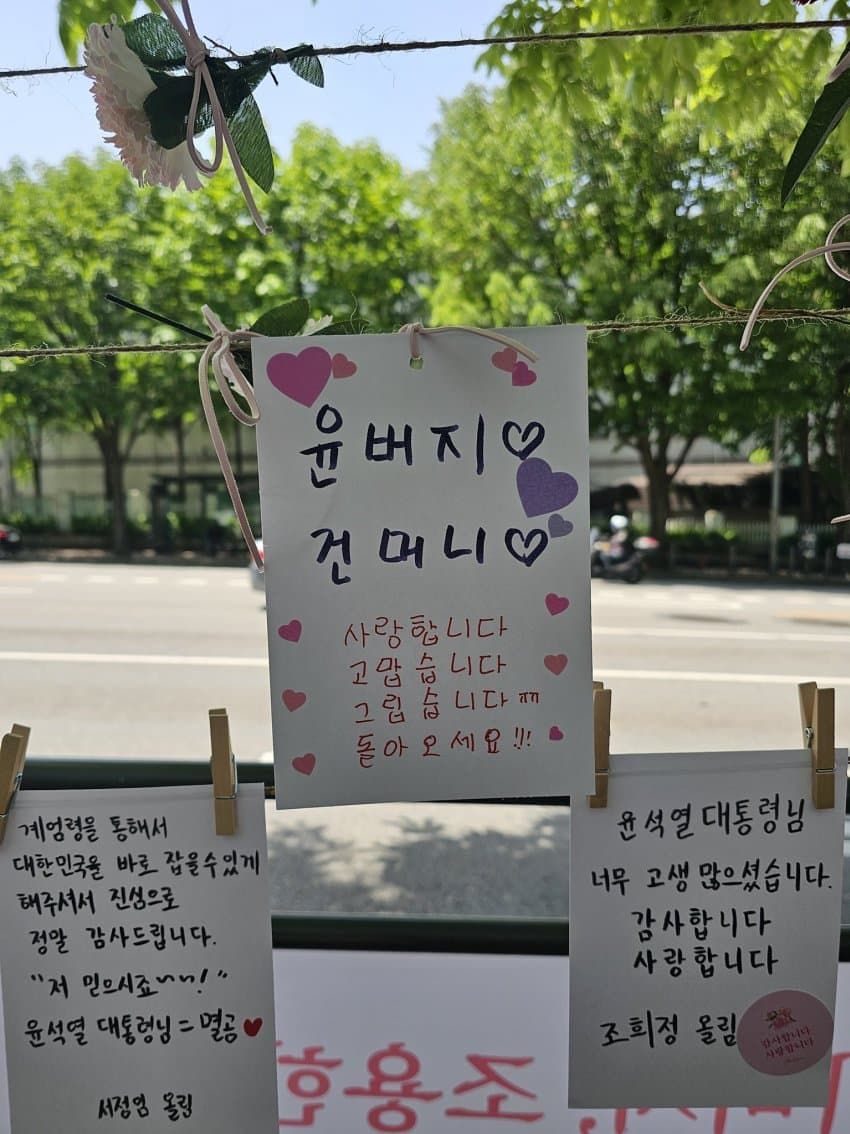 윤버지♡
건머니♡
사랑합니다
고맙습니다
그립습니다ㅠㅠ
돌아오세요!!!
계엄령을 통해서
대한민국을 바로 잡을수있게
해주셔서 진심으로
정말 감사드립니다.
"저 믿으시죠~~!"
윤석열 대통령님 = 멸공♥
올림
윤석열 대통령님
너무 고생 많으셨습니다.
감사합니다
사랑합니다
조희정 올림
감사합니다
사랑합니다
조용한